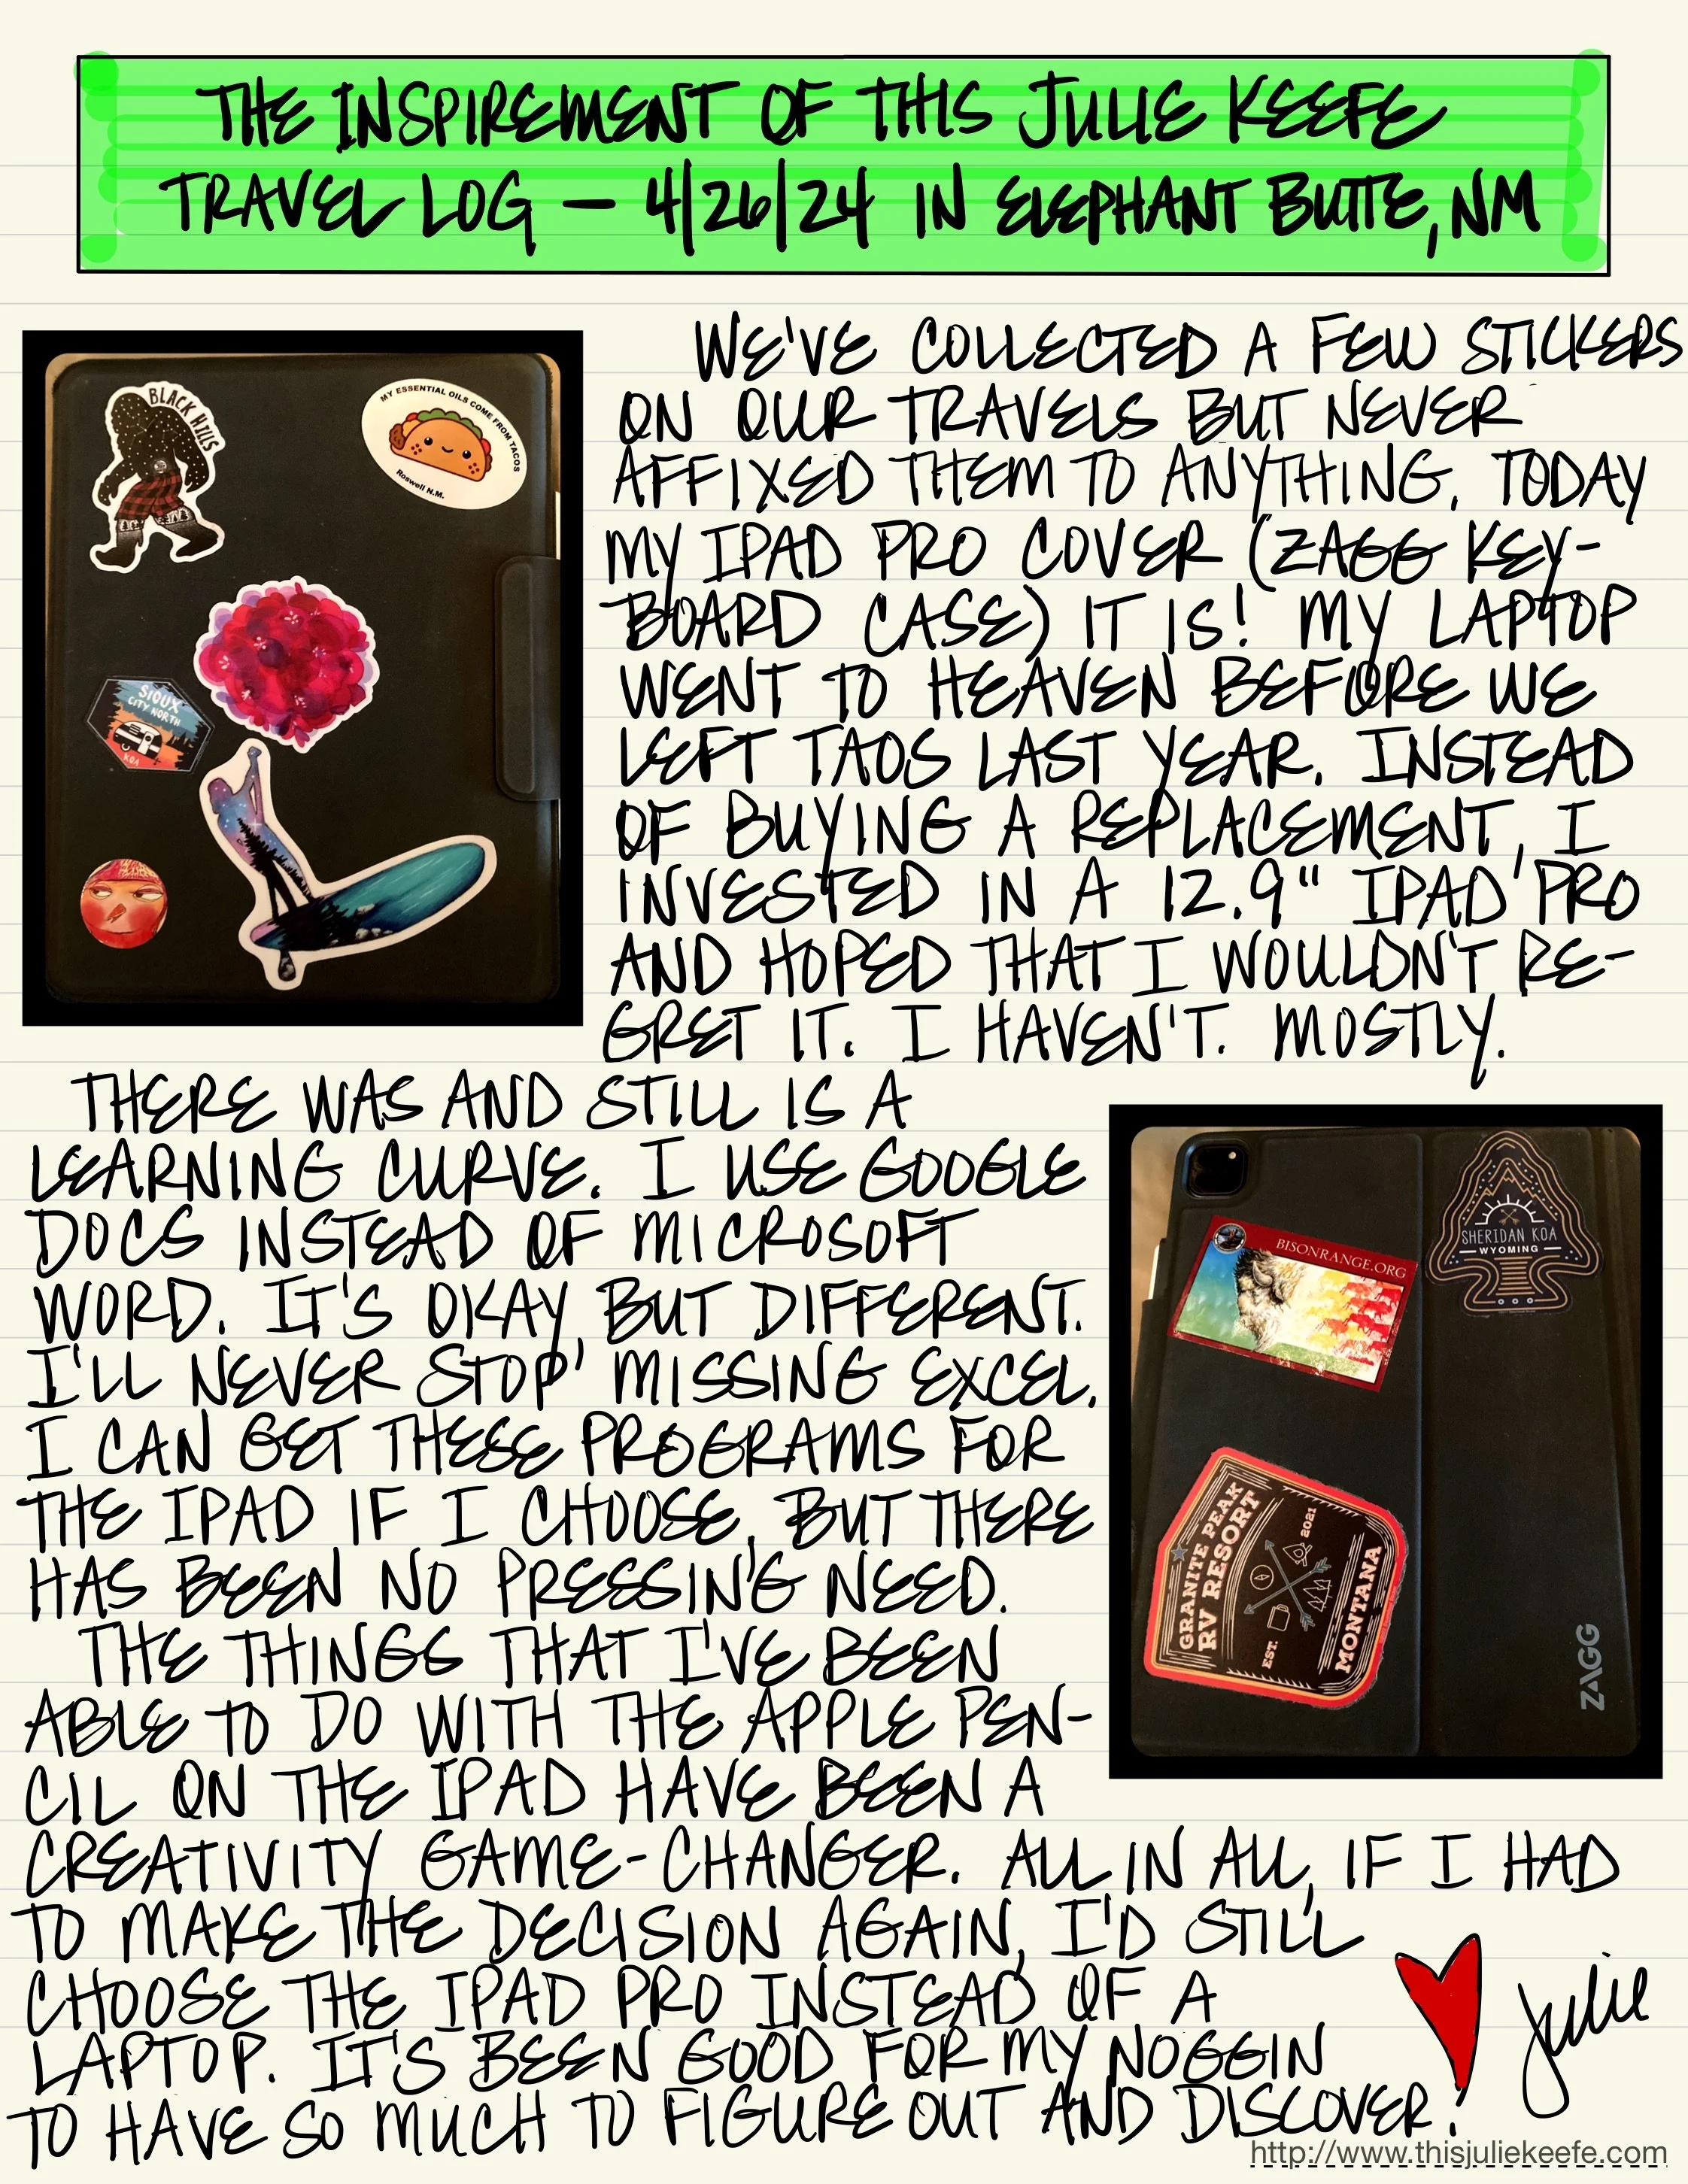 THE INSPIREMENT OF THIS JULIE KEEFE
TRAVEL LOG — 4/26/24 IN ELEPHANT BUTTE, NM
BLACK HILLS
MY ESSENTIAL OILS COME FROM TACOS
Roswell N.M.
SIOUX
CITY NORTH
KOA
WE'VE COLLECTED A FEW STICKERS
ON OUR TRAVELS BUT NEVER
AFFIXED THEM TO ANYTHING. TODAY
MY IPAD PRO COVER (ZAGG KEY-
BOARD CASE) IT IS! MY LAPTOP
WENT TO HEAVEN BEFORE WE
LEFT TAOS LAST YEAR. INSTEAD
OF BUYING A REPLACEMENT, I
INVESTED IN A 12.9" IPAD PRO
AND HOPED THAT I WOULDN'T RE-
GRET IT. I HAVEN'T. MOSTLY.
THERE WAS AND STILL IS A
LEARNING CURVE. I USE GOOGLE
DOCS INSTEAD OF MICROSOFT
WORD. IT'S OKAY, BUT DIFFERENT.
I'LL NEVER STOP MISSING EXCEL.
I CAN GET THESE PROGRAMS FOR
THE IPAD IF I CHOOSE, BUT THERE
HAS BEEN NO PRESSING NEED.
THE THINGS THAT I'VE BEEN
ABLE TO DO WITH THE APPLE PEN-
CIL ON THE IPAD HAVE BEEN A
CREATIVITY GAME-CHANGER. ALL IN ALL, IF I HAD
TO MAKE THE DECISION AGAIN, I'D STILL
CHOOSE THE IPAD PRO INSTEAD OF A
LAPTOP. IT'S BEEN GOOD FOR MY NOGGIN
TO HAVE SO MUCH TO FIGURE OUT AND DISCOVER!
BISONRANGE.ORG
SHERIDAN KOA
WYOMING
GRANITE PEAK
RV RESORT
EST. 2021
MONTANA
ZAGG
Julie
http://www.thisjuliekeefe.com